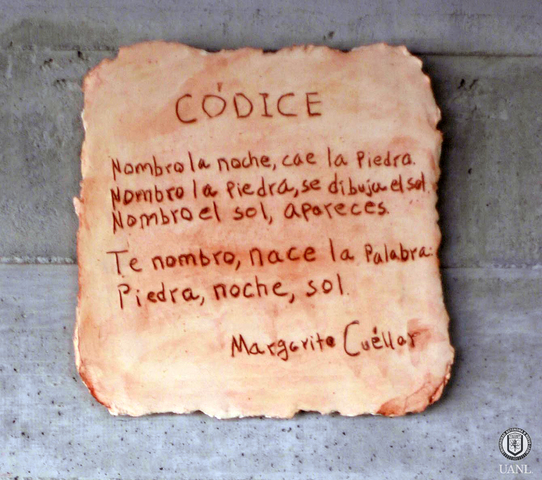 CÓDICE
Nombro la noche, cae la piedra.
Nombro la piedra, se dibuja el sol.
Nombro el sol, apareces.
Te nombro, nace la palabra:
Piedra, noche, sol.
Margarito Cuéllar
UANL